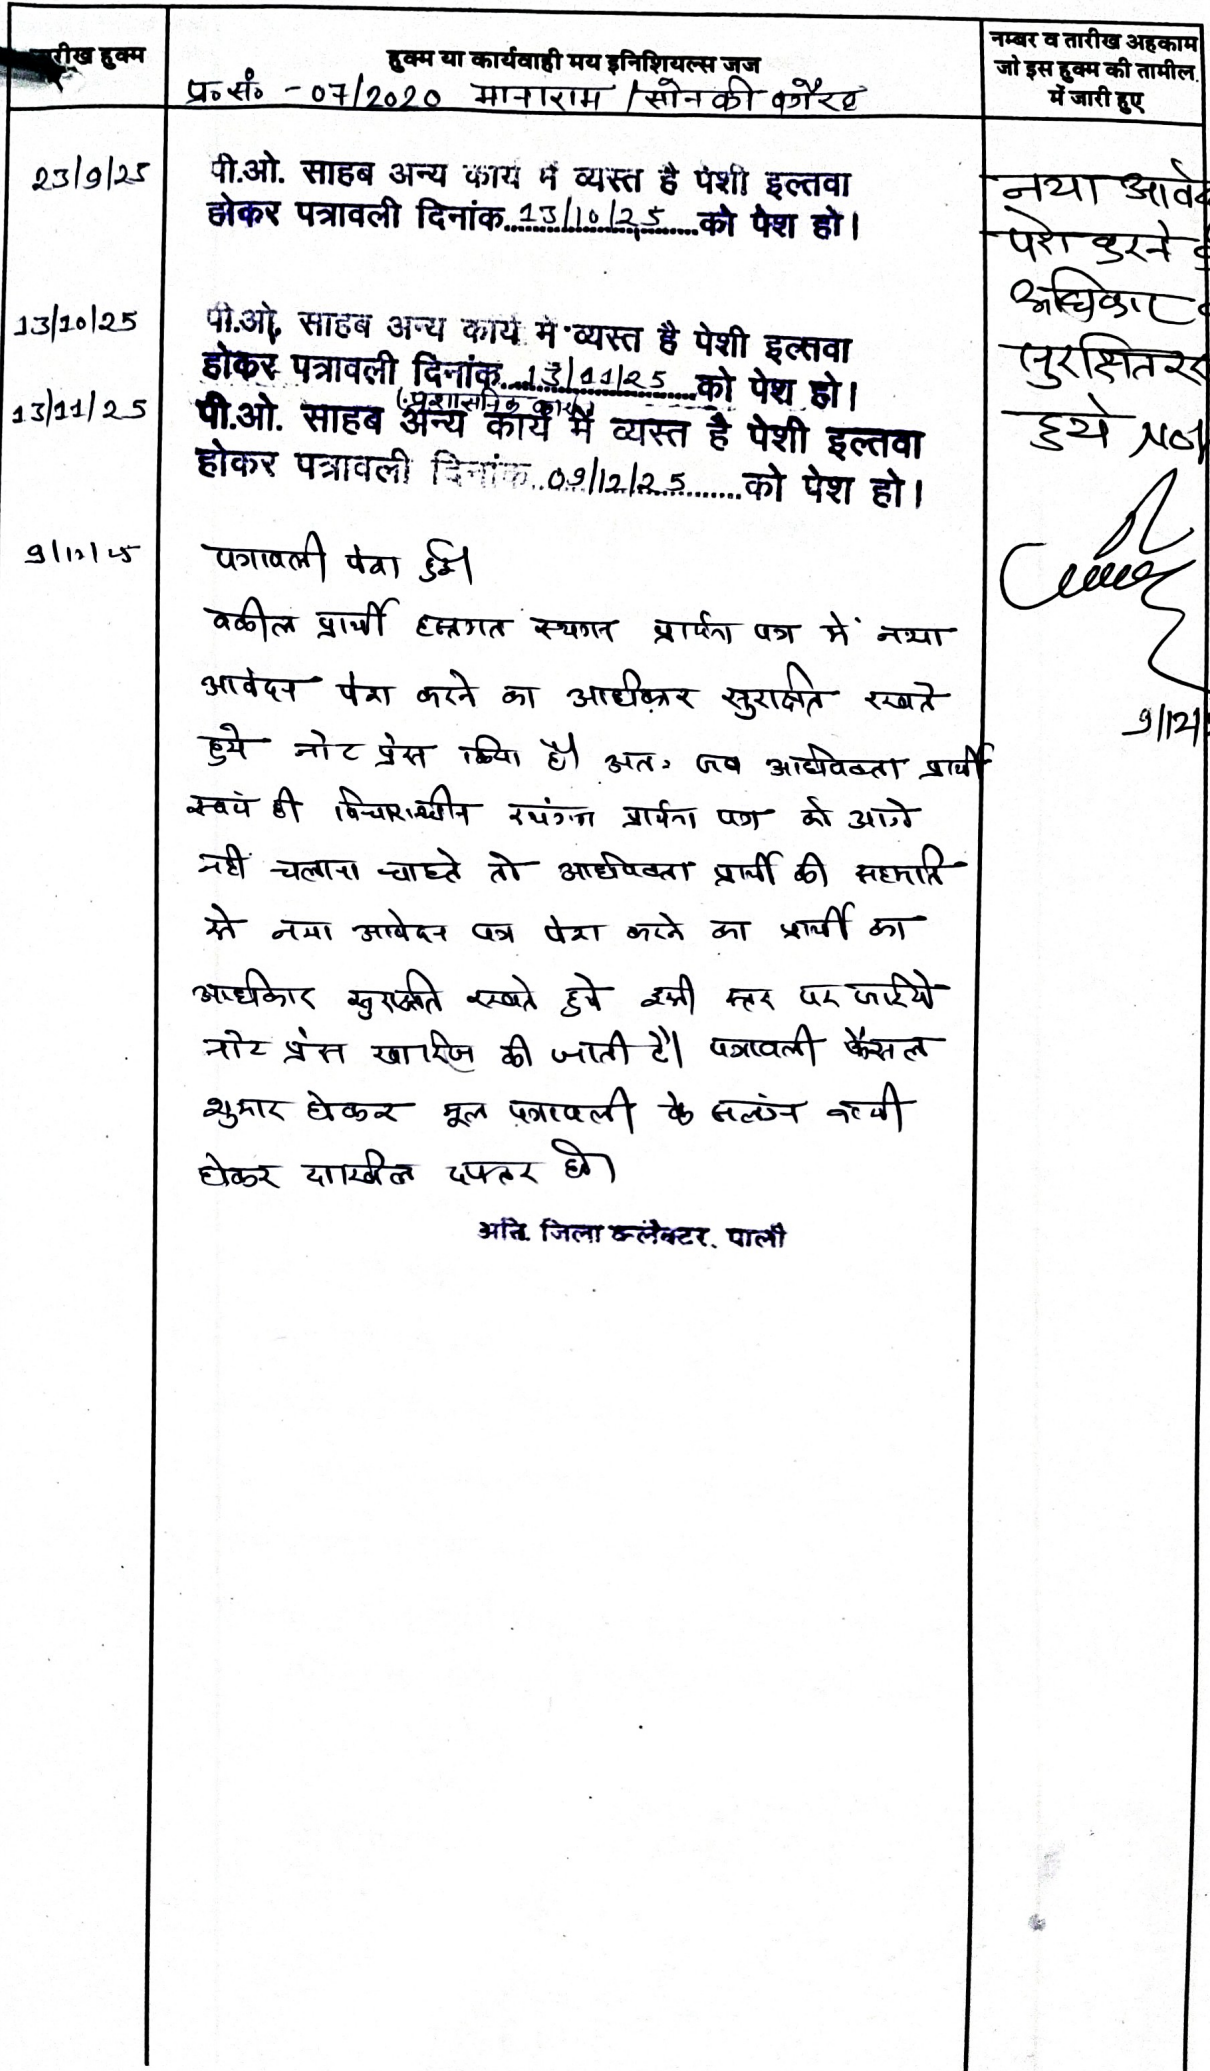 तारीख हुक्म
हुक्म या कार्यवाही मय इनिशियल्स जज
नम्बर व तारीख अहकाम
जो इस हुक्म की तामील
में जारी हुए
प्र.सं. - 07/2020 मानाराम / सोनकी वगैरह
23/9/25
पी.ओ. साहब अन्य कार्य में व्यस्त है पेशी इल्तवा
होकर पत्रावली दिनांक 13/10/25 को पेश हो।
13/10/25
पी.ओ. साहब अन्य कार्य में व्यस्त है पेशी इल्तवा
होकर पत्रावली दिनांक 13/11/25 को पेश हो।
13/11/25
(प्रशासनिक कार्य)
पी.ओ. साहब अन्य कार्य में व्यस्त है पेशी इल्तवा
होकर पत्रावली दिनांक 09/12/25 को पेश हो।
9/12/25
पत्रावली पेश हुई।
वकील प्रार्थी हस्तगत स्थगन प्रार्थना पत्र में नया
आवेदन पेश करने का अधिकार सुरक्षित रखते
हुये नोट प्रेस किया है। अतः जब अधिवक्ता प्रार्थी
स्वयं ही विचाराधीन स्थगन प्रार्थना पत्र को आगे
नहीं चलाना चाहते तो अधिवक्ता प्रार्थी की सहमति
से नया आवेदन पत्र पेश करने का प्रार्थी का
अधिकार सुरक्षित रखते हुये इसी स्तर पर जरिये
नोट प्रेस खारिज की जाती है। पत्रावली फैसल
शुमार होकर मूल पत्रावली के सलंग्न नत्थी
होकर दाखील दफ्तर हो।
अति. जिला कलेक्टर, पाली
नया
पेश करने
अधिकार
सुरक्षित
हुये
9/12/